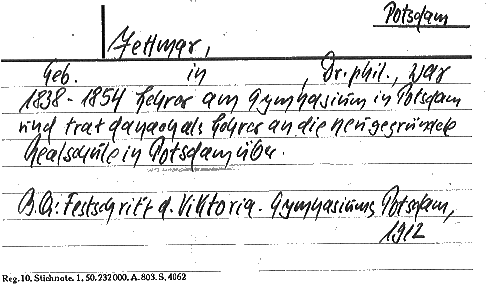 Potsdam
Jettmar,
Geb. in , Dr. phil., war
1838 - 1854 Lehrer am Gymnasium in Potsdam
und trat danach als Lehrer an die neugegründete
Realschule in Potsdam über.
B. Qi: Festschrift d. Viktoria-Gymnasiums Potsdam,
1912
Reg. 10. Stichnote. 1. 50. 232000. A. 803. S. 4062